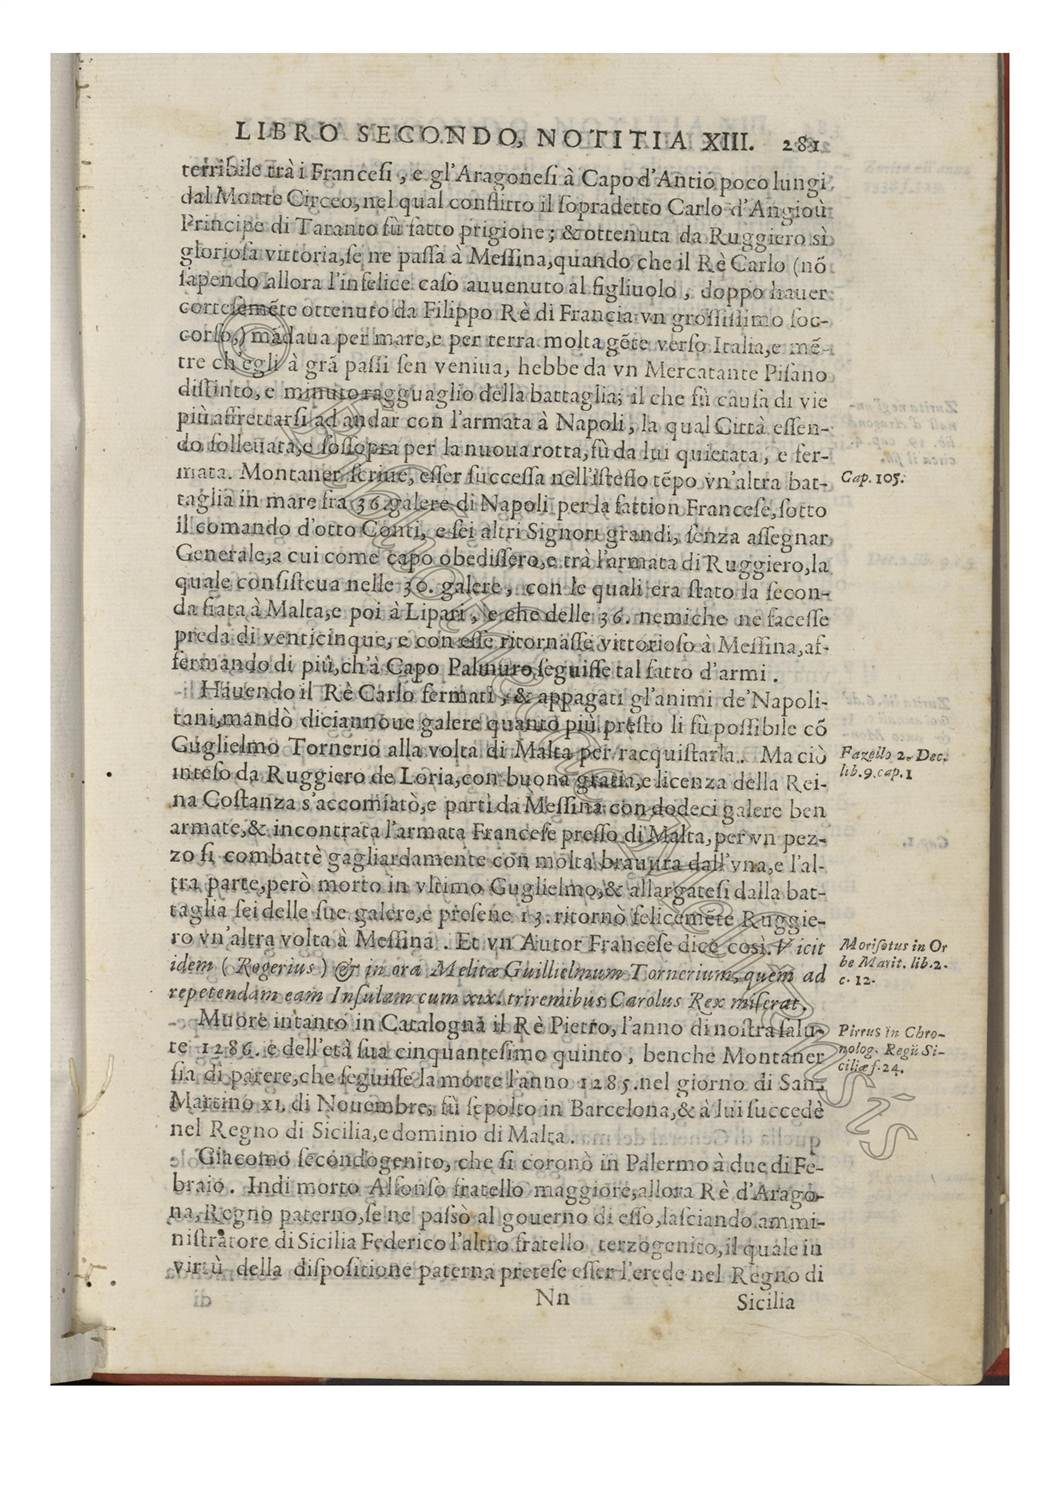 LIBRO SECONDO, NOTITIA XIII. 281
terribile trà i Franceſi, e gl'Aragoneſi à Capo d'Antio poco lungi
dal Monte Circeo, nel qual conflitto il ſopradetto Carlo d'Angioù
Principe di Taranto fù fatto prigione; & ottenuta da Ruggiero sì
glorioſa vittoria, ſe ne paſſa à Meſſina, quando che il Rè Carlo (nõ
ſapendo allora l'infelice caſo auuenuto al figliuolo, doppo hauer
corteſemẽte ottenuto da Filippo Rè di Francia vn groſſiſſimo ſoc-
corſo,) mãdaua per mare, e per terra molta gẽte verſo Italia, e mẽ-
tre ch'egli à grã paſſi ſen veniua, hebbe da vn Mercatante Piſano
diſtinto, e minuto ragguaglio della battaglia; il che fù cauſa di vie
più affrettarſi ad andar con l'armata à Napoli, la qual Città eſſen-
do ſolleuata, e ſoſſopra per la nuoua rotta, fù da lui quietata, e fer-
mata. Montaner ſcriue, eſſer ſucceſſa nell'iſteſſo tẽpo vn'altra bat-
Cap. 105.
taglia in mare fra 36. galere di Napoli per la fattion Franceſe, ſotto
il comando d'otto Conti, e ſei altri Signori grandi, ſenza aſſegnar
Generale, a cui come capo obediſſero, e trà l'armata di Ruggiero, la
quale conſiſteua nelle 36. galere, con le quali era ſtato la ſecon-
da fiata à Malta, e poi à Lipari, e che delle 36. nemiche ne faceſſe
preda di venticinque, e con eſſe ritornaſſe vittorioſo à Meſſina, af-
fermando di più, ch'à Capo Palinuro ſeguiſſe tal fatto d'armi.
Hauendo il Rè Carlo fermati, & appagati gl'animi de' Napoli-
tani, mandò diciannoue galere quanto più preſto li fù poſſibile cõ
Guglielmo Tornerio alla volta di Malta per racquiſtarla. Ma ciò
Fazello 2. Dec.
lib. 9. cap. 1
inteſo da Ruggiero de Loria, con buona gratia, e licenza della Rei-
na Coſtanza s'accomiatò, e partì da Meſſina con dodeci galere ben
armate, & incontrata l'armata Franceſe preſſo di Malta, per vn pez-
zo ſi combattè gagliardamente con molta brauura dall'vna, e l'al-
tra parte, però morto in vltimo Guglielmo, & allargateſi dalla bat-
taglia ſei delle ſue galere, e preſene 13. ritornò felicemẽte Ruggie-
ro vn'altra volta à Meſſina. Et vn Autor Franceſe dice così. Vicit
Moriſotus in Or
be Marit. lib. 2.
c. 12.
idem (Rogerius) & in ora Melitæ Guillielmum Tornerium, quem ad
repetendam eam Inſulam cum xix. triremibus Carolus Rex miſerat.
Muore intanto in Catalogna il Rè Pietro, l'anno di noſtra ſalu-
Pirrus in Chro-
nolog. Regũ Si-
ciliæ f. 24.
te 1286. e dell'età ſua cinquanteſimo quinto, benche Montaner
ſia di parere, che ſeguiſſe la morte l'anno 1285. nel giorno di San
Martino xi. di Nouembre, fù ſepolto in Barcelona, & à lui ſuccedè
nel Regno di Sicilia, e dominio di Malta.
Giacomo ſecondogenito, che ſi coronò in Palermo à due di Fe-
braio. Indi morto Alfonſo fratello maggiore, allora Rè d'Arago-
na, Regno paterno, ſe ne paſsò al gouerno di eſſo, laſciando ammi-
niſtratore di Sicilia Federico l'altro fratello terzogenito, il quale in
virtù della diſpoſitione paterna preteſe eſſer l'erede nel Regno di
Nn Sicilia